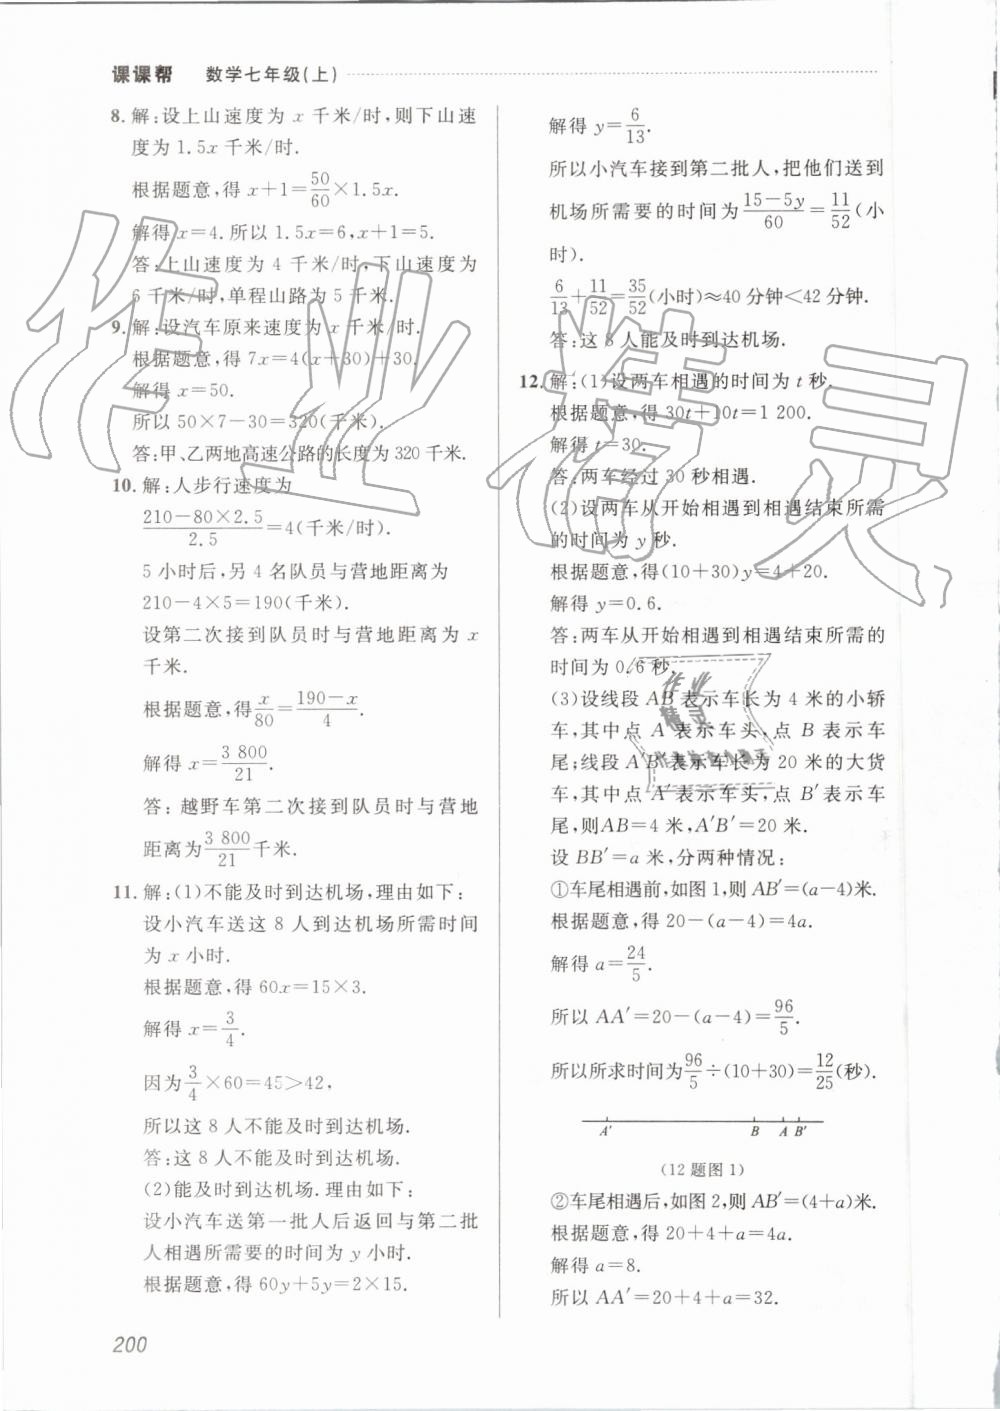 课课帮 数学七年级(上)
8. 解:设上山速度为 x 千米/时,则下山速
度为 1.5x 千米/时.
根据题意,得 x+1=50/60×1.5x.
解得 x=4.所以 1.5x=6,x+1=5.
答:上山速度为 4 千米/时,下山速度为
6 千米/时,单程山路为 5 千米.
9. 解:设汽车原来速度为 x 千米/时.
根据题意,得 7x=4(x+30)+30.
解得 x=50.
所以 50×7-30=320(千米).
答:甲、乙两地高速公路的长度为 320 千米.
10. 解:人步行速度为
(210-80×2.5)/2.5=4(千米/时).
5 小时后,另 4 名队员与营地距离为
210-4×5=190(千米).
设第二次接到队员时与营地距离为 x
千米.
根据题意,得 x/80=(190-x)/4.
解得 x=3 800/21.
答:越野车第二次接到队员时与营地
距离为 3 800/21 千米.
11. 解:(1)不能及时到达机场,理由如下:
设小汽车送这 8 人到达机场所需时间
为 x 小时.
根据题意,得 60x=15×3.
解得 x=3/4.
因为 3/4×60=45>42,
所以这 8 人不能及时到达机场.
答:这 8 人不能及时到达机场.
(2)能及时到达机场.理由如下:
设小汽车送第一批人后返回与第二批
人相遇所需要的时间为 y 小时.
根据题意,得 60y+5y=2×15.
200
解得 y=6/13.
所以小汽车接到第二批人,把他们送到
机场所需要的时间为 (15-5y)/60=11/52(小
时).
6/13+11/52=35/52(小时)≈40 分钟<42 分钟.
答:这 8 人能及时到达机场.
12. 解:(1)设两车相遇的时间为 t 秒.
根据题意,得 30t+10t=1 200.
解得 t=30.
答:两车经过 30 秒相遇.
(2)设两车从开始相遇到相遇结束所需
的时间为 y 秒.
根据题意,得(10+30)y=4+20.
解得 y=0.6.
答:两车从开始相遇到相遇结束所需的
时间为 0.6 秒.
(3)设线段 AB 表示车长为 4 米的小轿
车,其中点 A 表示车头,点 B 表示车
尾;线段 A′B′表示车长为 20 米的大货
车,其中点 A′表示车头,点 B′表示车
尾,则AB=4 米,A′B′=20 米.
设 BB′=a 米,分两种情况:
①车尾相遇前,如图 1,则 AB′=(a-4)米.
根据题意,得 20-(a-4)=4a.
解得 a=24/5.
所以 AA′=20-(a-4)=96/5.
所以所求时间为 96/5÷(10+30)=12/25(秒).
A′ B A B′
(12 题图 1)
②车尾相遇后,如图 2,则 AB′=(4+a)米.
根据题意,得 20+4+a=4a.
解得 a=8.
所以 AA′=20+4+a=32.
作业精灵
作业
精灵